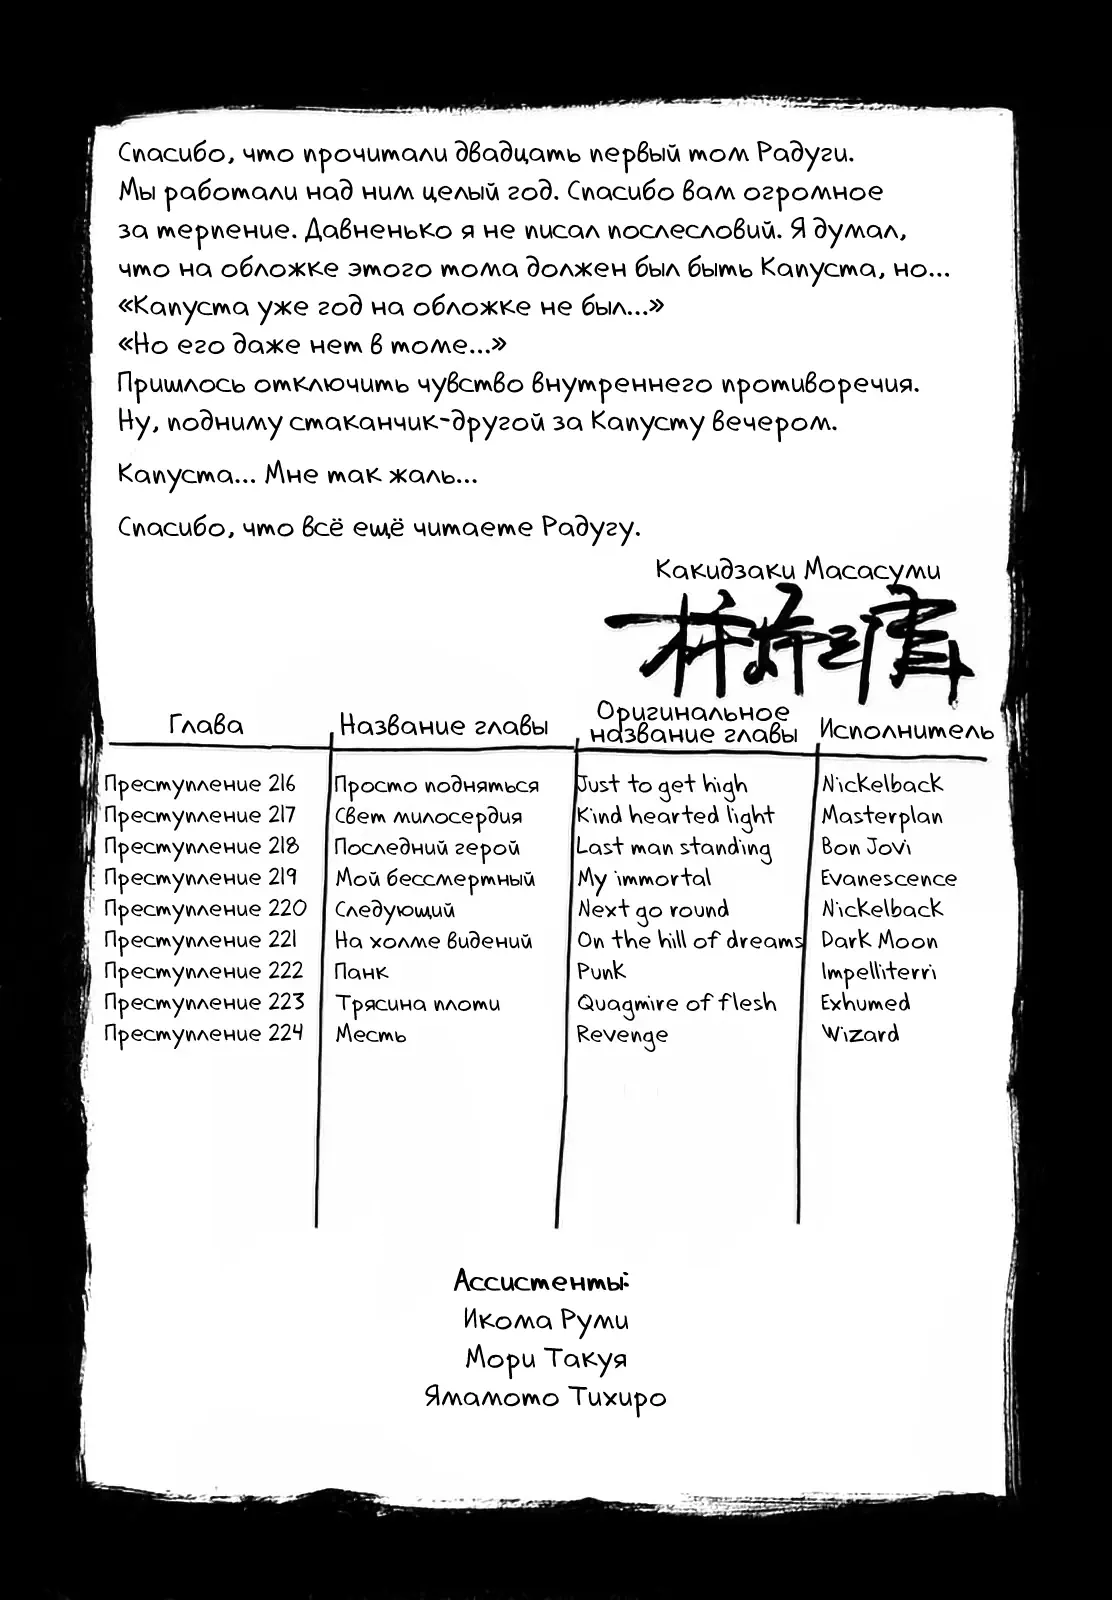 Спасибо, что прочитали двадцать первый том Радуги.
Мы работали над ним целый год. Спасибо вам огромное
за терпение. Давненько я не писал послесловий. Я думал,
что на обложке этого тома должен был быть Капуста, но...
«Капуста уже год на обложке не был...»
«Но его даже нет в томе...»
Пришлось отключить чувство внутреннего противоречия.
Ну, подниму стаканчик-другой за Капусту вечером.
Капуста... Мне так жаль...
Спасибо, что всё ещё читаете Радугу.
Какидзаки Масасуми
Глава Название главы Оригинальное название главы Исполнитель
Преступление 216 Просто подняться Just to get high Nickelback
Преступление 217 Свет милосердия Kind hearted light Masterplan
Преступление 218 Последний герой Last man standing Bon Jovi
Преступление 219 Мой бессмертный My immortal Evanescence
Преступление 220 Следующий Next go round Nickelback
Преступление 221 На холме видений On the hill of dreams Dark Moon
Преступление 222 Панк Punk Impelliterri
Преступление 223 Трясина плоти Quagmire of flesh Exhumed
Преступление 224 Месть Revenge Wizard
Ассистенты:
Икома Руми
Мори Такуя
Ямамото Тихиро